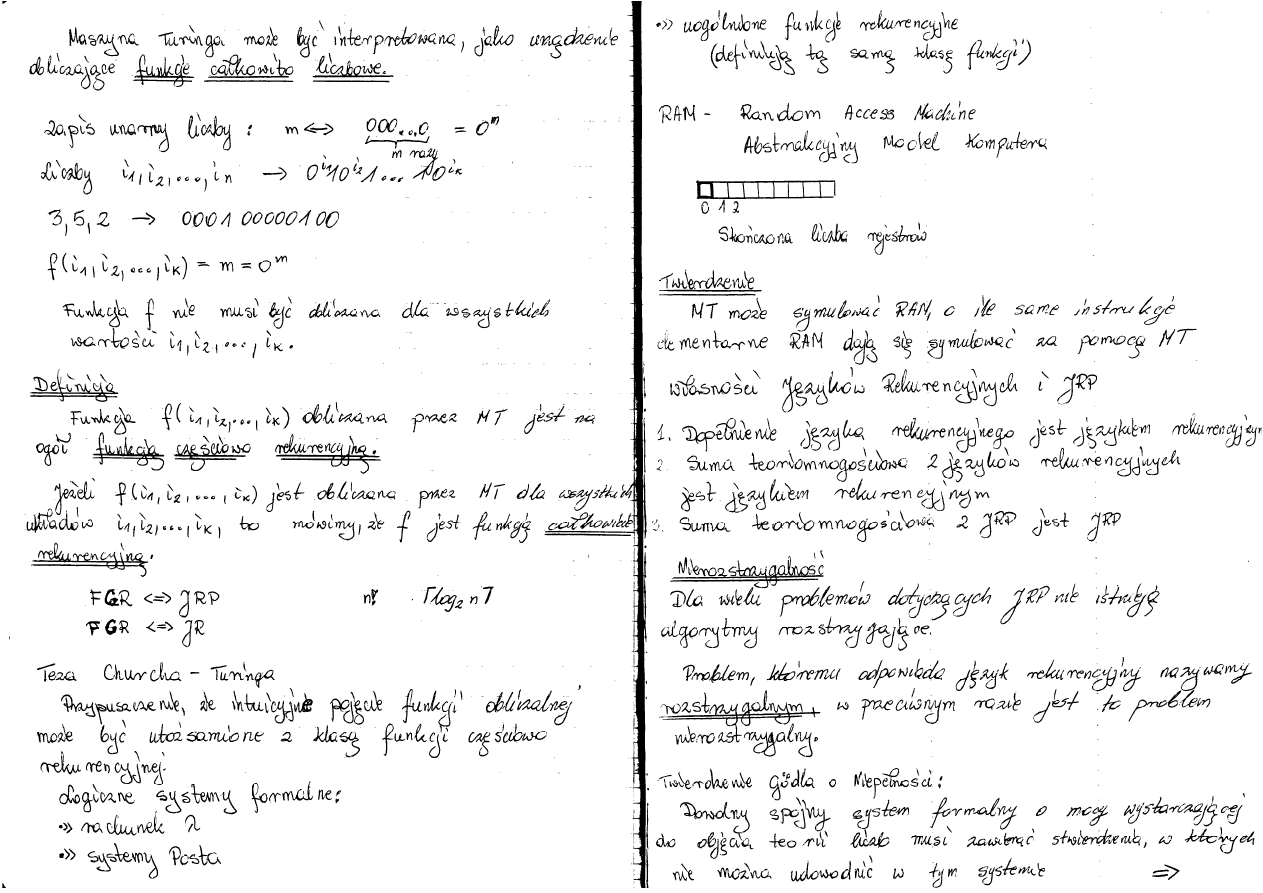 Maszyna Turinga może być interpretowana, jako urządzenie
obliczające funkcje całkowito liczbowe.
Zapis unarny liczby : m <=> 000...0 = 0^m
m razy
Liczby i1, i2, ..., in → 0^i1 1 0^i2 1 ... 1 0^ik
3, 5, 2 → 000100000100
f(i1, i2, ..., ik) = m = 0^m
Funkcja f nie musi być obliczana dla wszystkich
wartości i1, i2, ..., ik.
Definicja
Funkcja f(i1, i2, ..., ik) obliczana przez MT jest na
ogół funkcją częściowo rekurencyjną.
Jeżeli f(i1, i2, ..., ik) jest obliczana przez MT dla wszystkich
układów i1, i2, ..., ik, to mówimy, że f jest funkcją całkowicie
rekurencyjną.
FGR <=> JRP n! ⌈log2 n⌉
FGR <=> JR
Teza Churcha - Turinga
Przypuszczenie, że intuicyjne pojęcie funkcji obliczalnej
może być utożsamione z klasą funkcji częściowo
rekurencyjnej.
Logiczne systemy formalne:
•» rachunek λ
•» systemy Posta
•» uogólnione funkcje rekurencyjne
(definiują tą samą klasę funkcji)
RAM - Random Access Machine
Abstrakcyjny Model Komputera
0 1 2
Skończona liczba rejestrów
Twierdzenie
MT może symulować RAM, o ile same instrukcje
elementarne RAM dają się symulować za pomocą MT
własności Języków Rekurencyjnych i JRP
1. Dopełnienie języka rekurencyjnego jest językiem rekurencyjnym
2. Suma teoriomnogościowa 2 języków rekurencyjnych
jest językiem rekurencyjnym
3. Suma teoriomnogościowa 2 JRP jest JRP
Nierozstrzygalność
Dla wielu problemów dotyczących JRP nie istnieją
algorytmy rozstrzygające.
Problem, któremu odpowiada język rekurencyjny nazywamy
rozstrzygalnym, w przeciwnym razie jest to problem
nierozstrzygalny.
Twierdzenie Gödla o Niepełności:
Dowolny spójny system formalny o mocy wystarczającej
do objęcia teorii liczb musi zawierać stwierdzenia, w których
nie można udowodnić w tym systemie =>